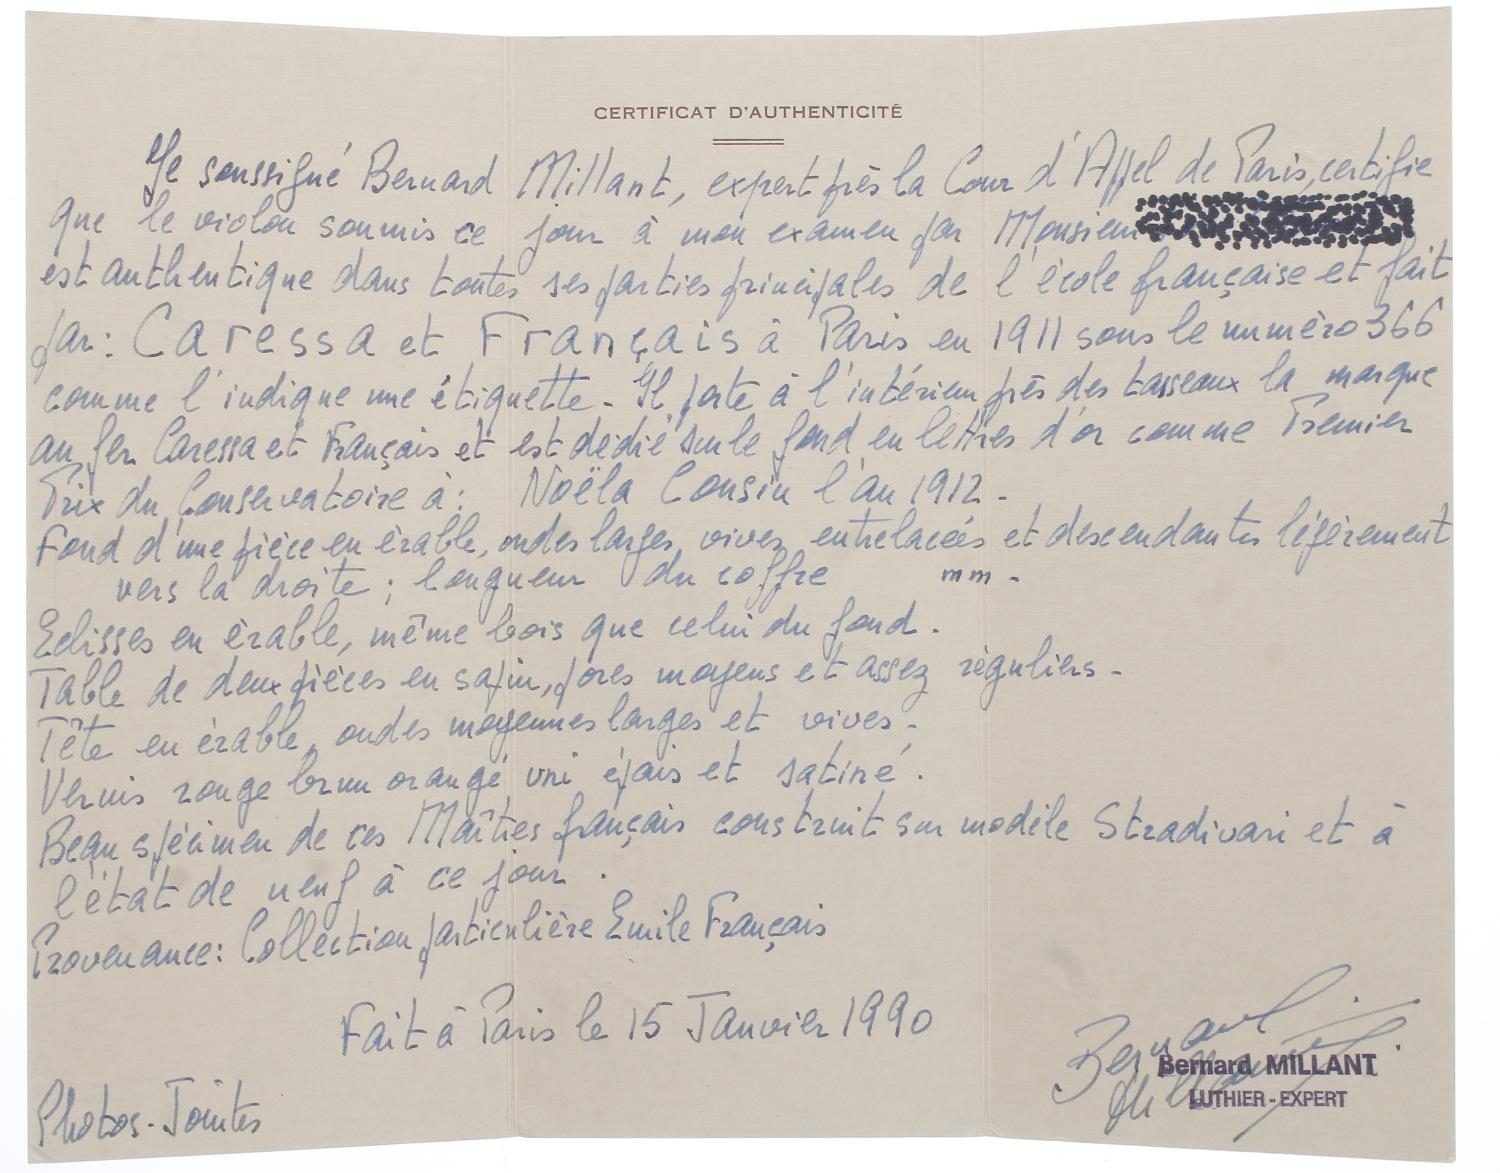 CERTIFICAT D'AUTHENTICITÉ
Je soussigné Bernard Millant, expert près la Cour d'Appel de Paris, certifie
que le violon soumis ce jour à mon examen par Monsieur
est authentique dans toutes ses parties principales de l'école française et fait
par: Caressa et Français à Paris en 1911 sous le numéro 366
comme l'indique une étiquette - Il porte à l'intérieur près des tasseaux la marque
au fer Caressa et Français et est dédié sur le fond en lettres d'or comme Premier
Prix du Conservatoire à: Noëla Cousin l'an 1912 -
Fond d'une pièce en érable, ondes larges, vives, entrelacées et descendantes légèrement
vers la droite; longueur du coffre mm -
Eclisses en érable, même bois que celui du fond.
Table de deux pièces en sapin, pores moyens et assez réguliers -
Tête en érable, ondes moyennes larges et vives -
Vernis rouge brun orangé uni épais et satiné.
Beau spécimen de ces Maîtres français construit sur modèle Stradivari et à
l'état de neuf à ce jour.
Provenance: Collection particulière Emile Français
Fait à Paris le 15 Janvier 1990
Bernard Millant
Bernard MILLANT
LUTHIER-EXPERT
Photos-Jointes